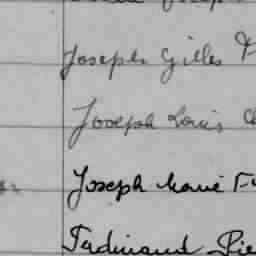 Joseph Gilles
Joseph Louis
Joseph Marie
Ferdinand Pie